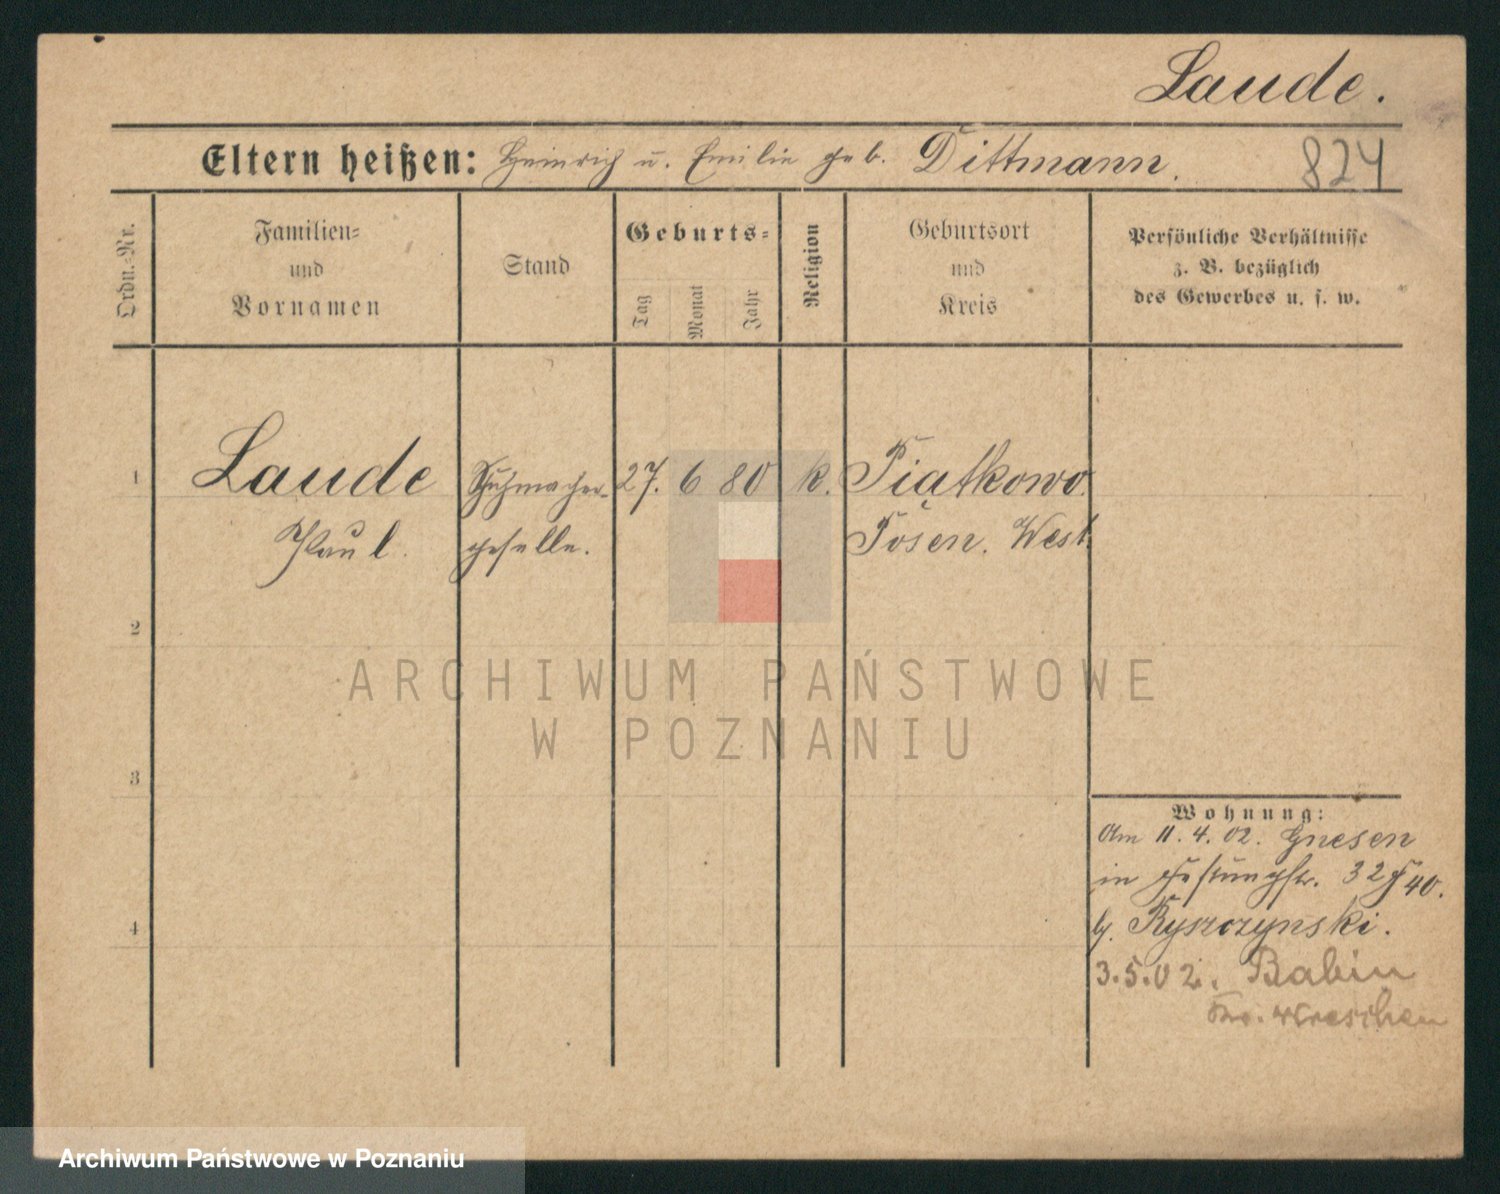 Laude.
Eltern heißen: Heinrich u. Emilie geb. Dittmann.
824
Ordn.-Nr.
Familien-
und
Vornamen
Stand
Geburts-
Tag
Monat
Jahr
Religion
Geburtsort
und
Kreis
Persönliche Verhältnisse
z. B. bezüglich
des Gewerbes u. s. w.
1 Laude Schuhmacher- 27. 6 80 k. Piątkowo
Paul. geselle. Posen. West.
2
3
4
Wohnung:
Am 11.4.02. Gnesen
in 32 40.
b. Ryszczynski.
3.5.02. Babin
Kr. Wreschen
ARCHIWUM PAŃSTWOWE
W POZNANIU
Archiwum Państwowe w Poznaniu